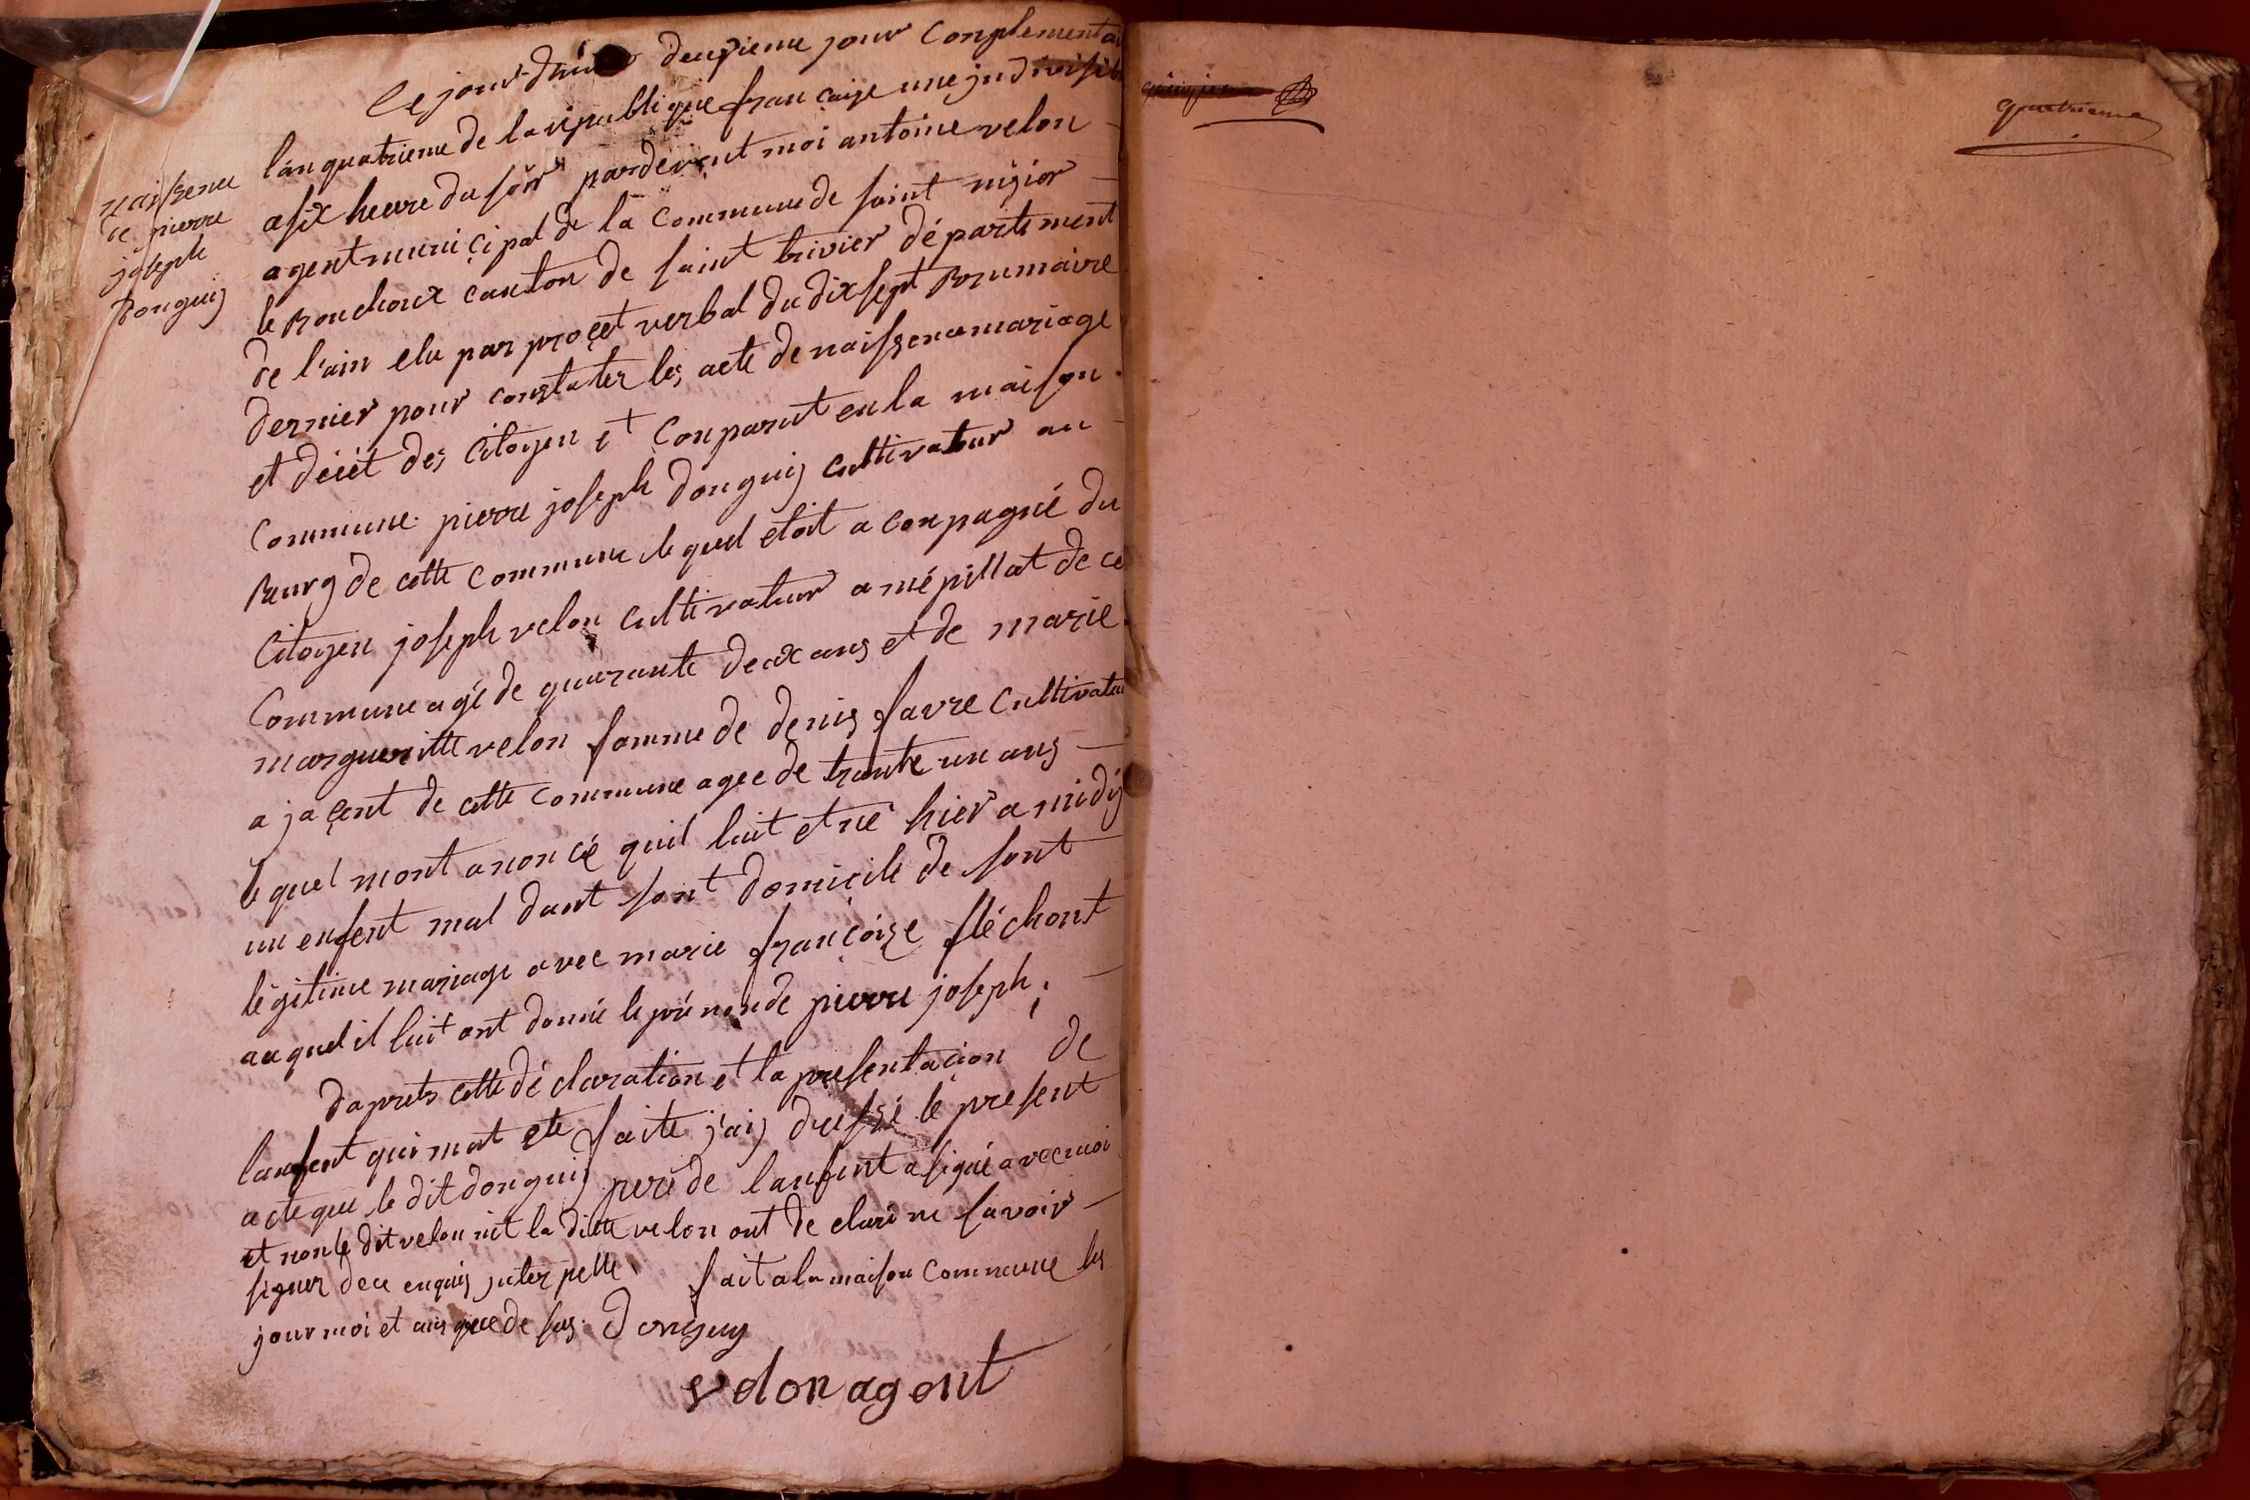 naissence
de pierre
joseph
donguis
Ce jour-d'hui deuxieme jour Conplementai
lán quatrieme de la republique francaise une jndivisib
a six heure du soir pardevent moi antoine velon
agent municipal de la commune de saint nizier
le Bouchoux canton de saint trivier département
de l'ain elu par procet verbal du dix sept Brumaire
dernier pour constater les acte de naissence mariage
et décét des Citoyen et Conparut en la maison
Commune pierre joseph donguis cultivateur au
Bourg de cette Commune le quel etoit a conpagné du
Citoyen joseph velon cultivateur a mépillat de ce
Commune agé de quarante deux ans et de marie
margueritte velon fomme de denis favre Cultivateu
a jaçent de cette commune agee de trante un ans
le quel mont anoncé quil luit et né hier a midij
un enfent mal dant sont domicile de sont
légitime mariage avec marie françoise fléchont
au quel il luit ont donné le prénon de pierre joseph;
daprets cette déclaration et la presentaçion de
lanfent qui mat ete faite j'aij dressé le present
acte que le dit donguis pere de lanfent a signé avec moi
et non le dit velon nit la ditte velon ont de claré ne savoir
signer dece enquis jnterpellé fait a la maison Commune les
jour moi et ans que de sus. Donguy
velon agent
quatrieme